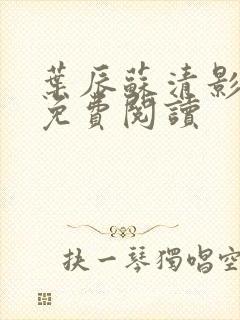 葉辰蘇清影
免費閱讀
抉一琴獨唱空